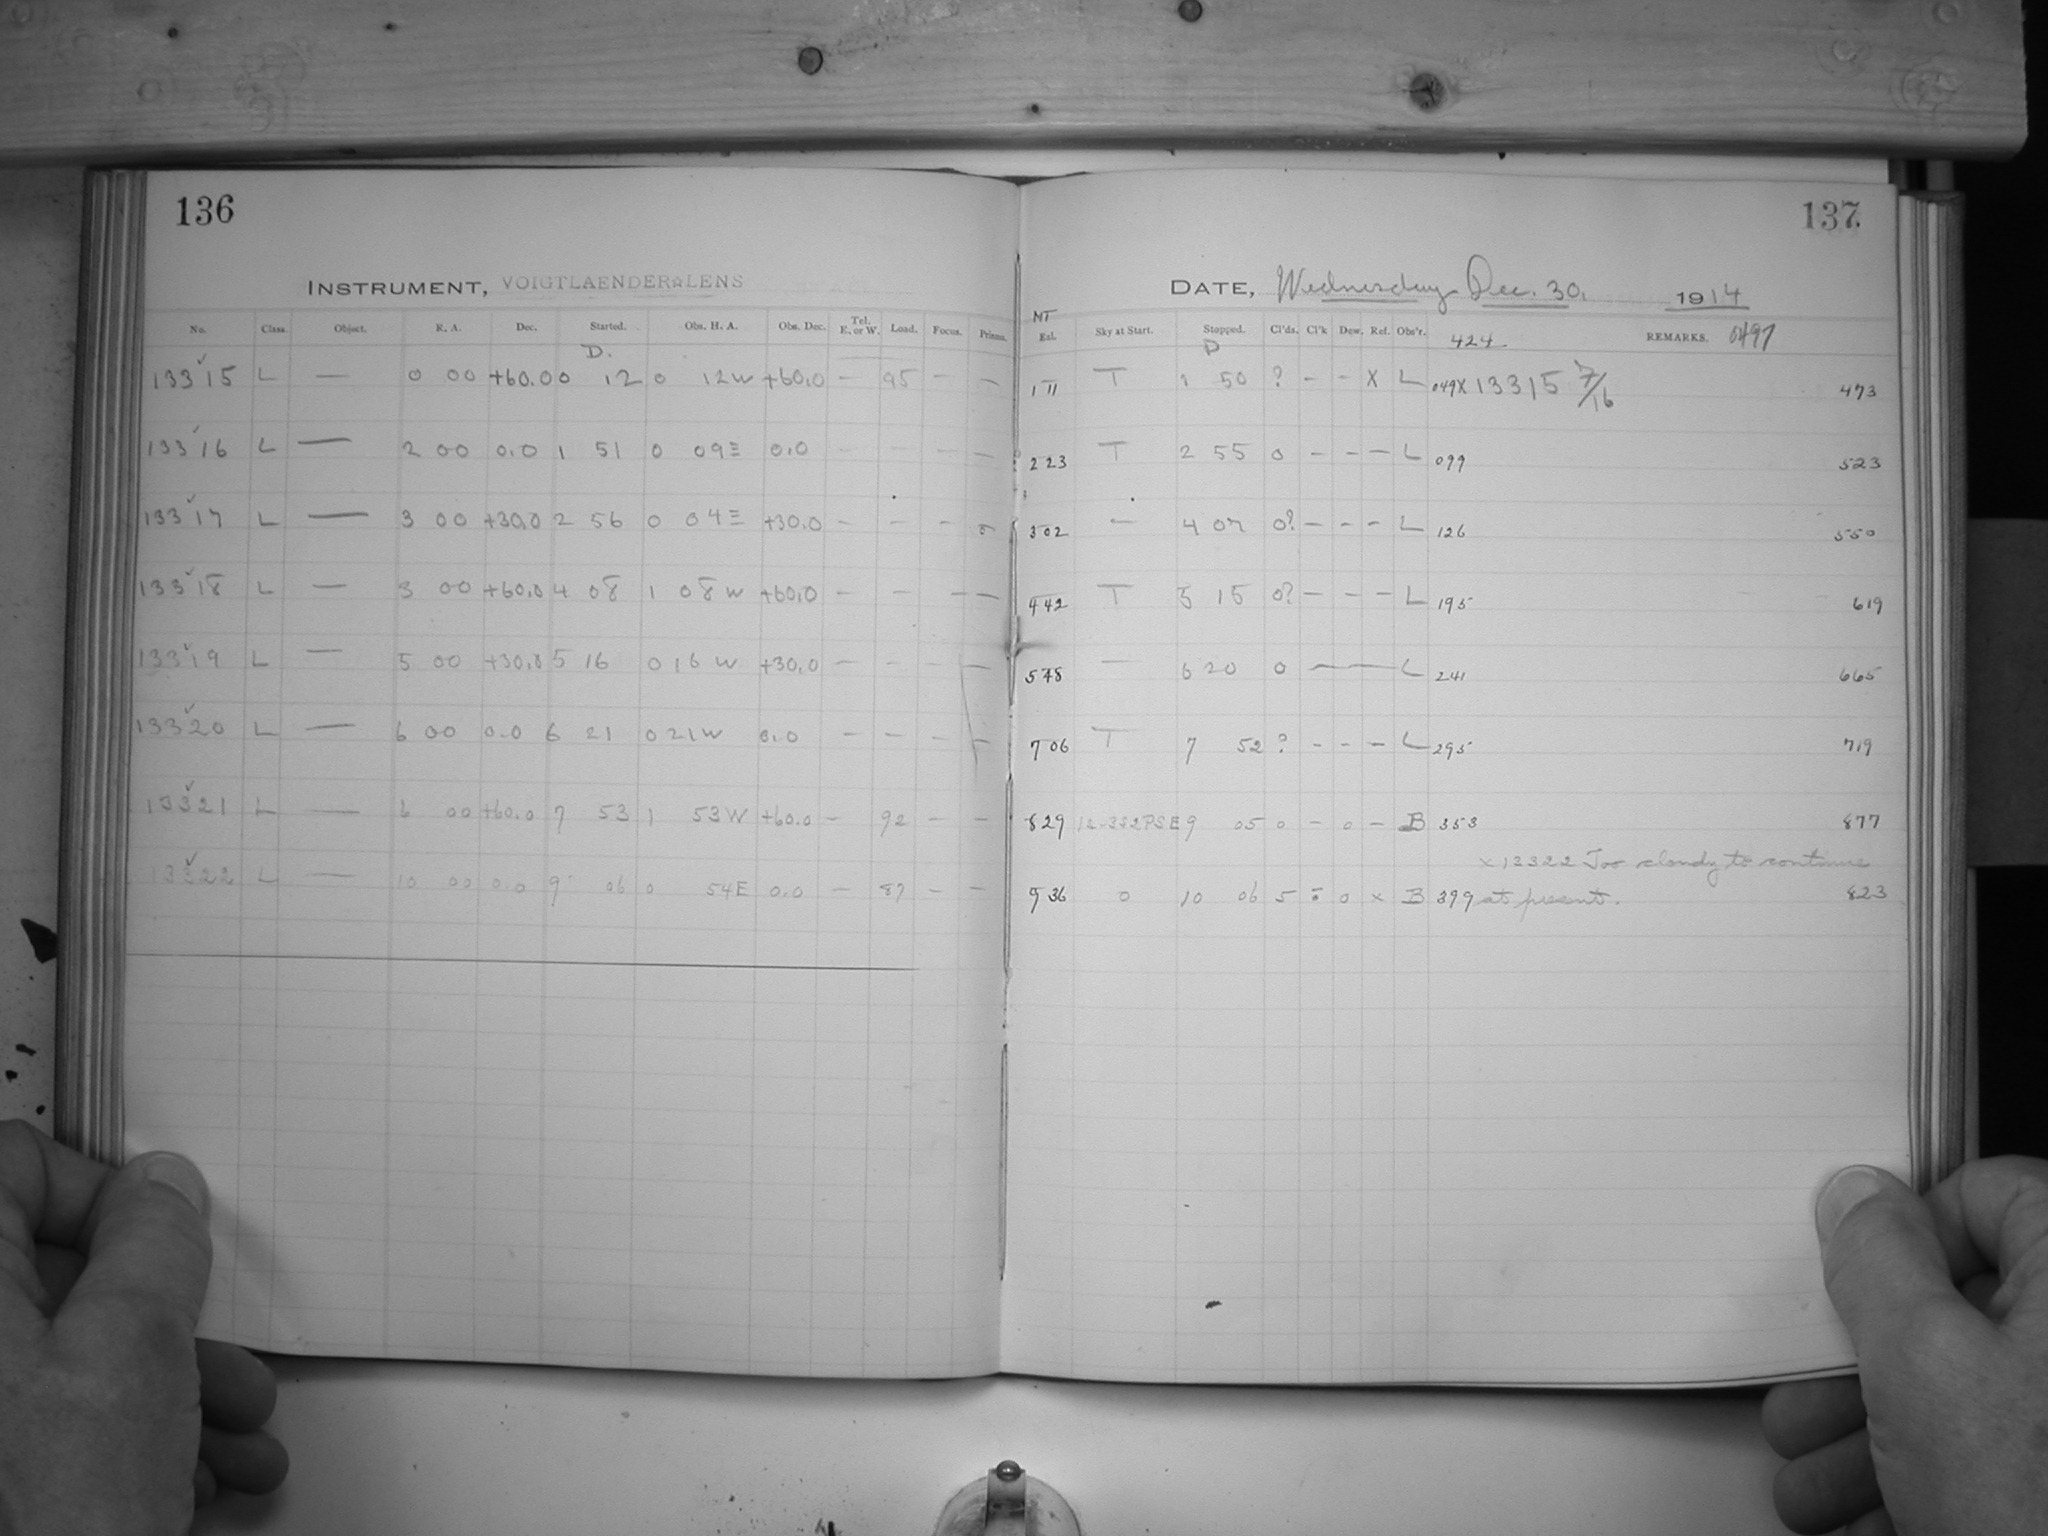 136
INSTRUMENT, VOIGTLAENDER LENS
No. Class. Object. R. A. Dec. Started. Obs. H. A. Obs. Dec. Tel. E. or W. Load. Focus. Prisms.
D.
13315 L — 0 00 +60.0 0 12 0 12W +60.0 — 95 — —
13316 L — 2 00 0.0 1 51 0 09E 0.0 — — — —
13317 L — 3 00 +30.0 2 56 0 04E +30.0 — — — —
13318 L — 3 00 +60.0 4 08 1 08W +60.0 — — — —
13319 L — 5 00 +30.0 5 16 0 16W +30.0 — — — —
13320 L — 6 00 0.0 6 21 0 21W 0.0 — — — —
13321 L — 6 00 +60.0 7 53 1 53W +60.0 — 92 — —
13322 L — 10 00 0.0 9 06 0 54E 0.0 — 87 — —
137
DATE, Wednesday Dec. 30, 1914
MT
Exl. Sky at Start. Stopped. Cl'ds. Cl'k Dew. Ref. Obs'r. 424 REMARKS. 0497
D
1 11 T 1 50 ? — — X L 049 X 13315 7/16 473
2 23 T 2 55 0 — — — L 099 523
3 02 — 4 07 0? — — — L 126 550
4 42 T 5 15 0? — — — L 195 619
5 48 — 6 20 0 — — L 241 665
7 06 T 7 52 ? — — — L 295 719
8 29 12-332PSE 9 05 0 — 0 — B 353 877
x 13322 Too cloudy to continue
9 36 0 10 06 5 — 0 x B 399 at present. 823